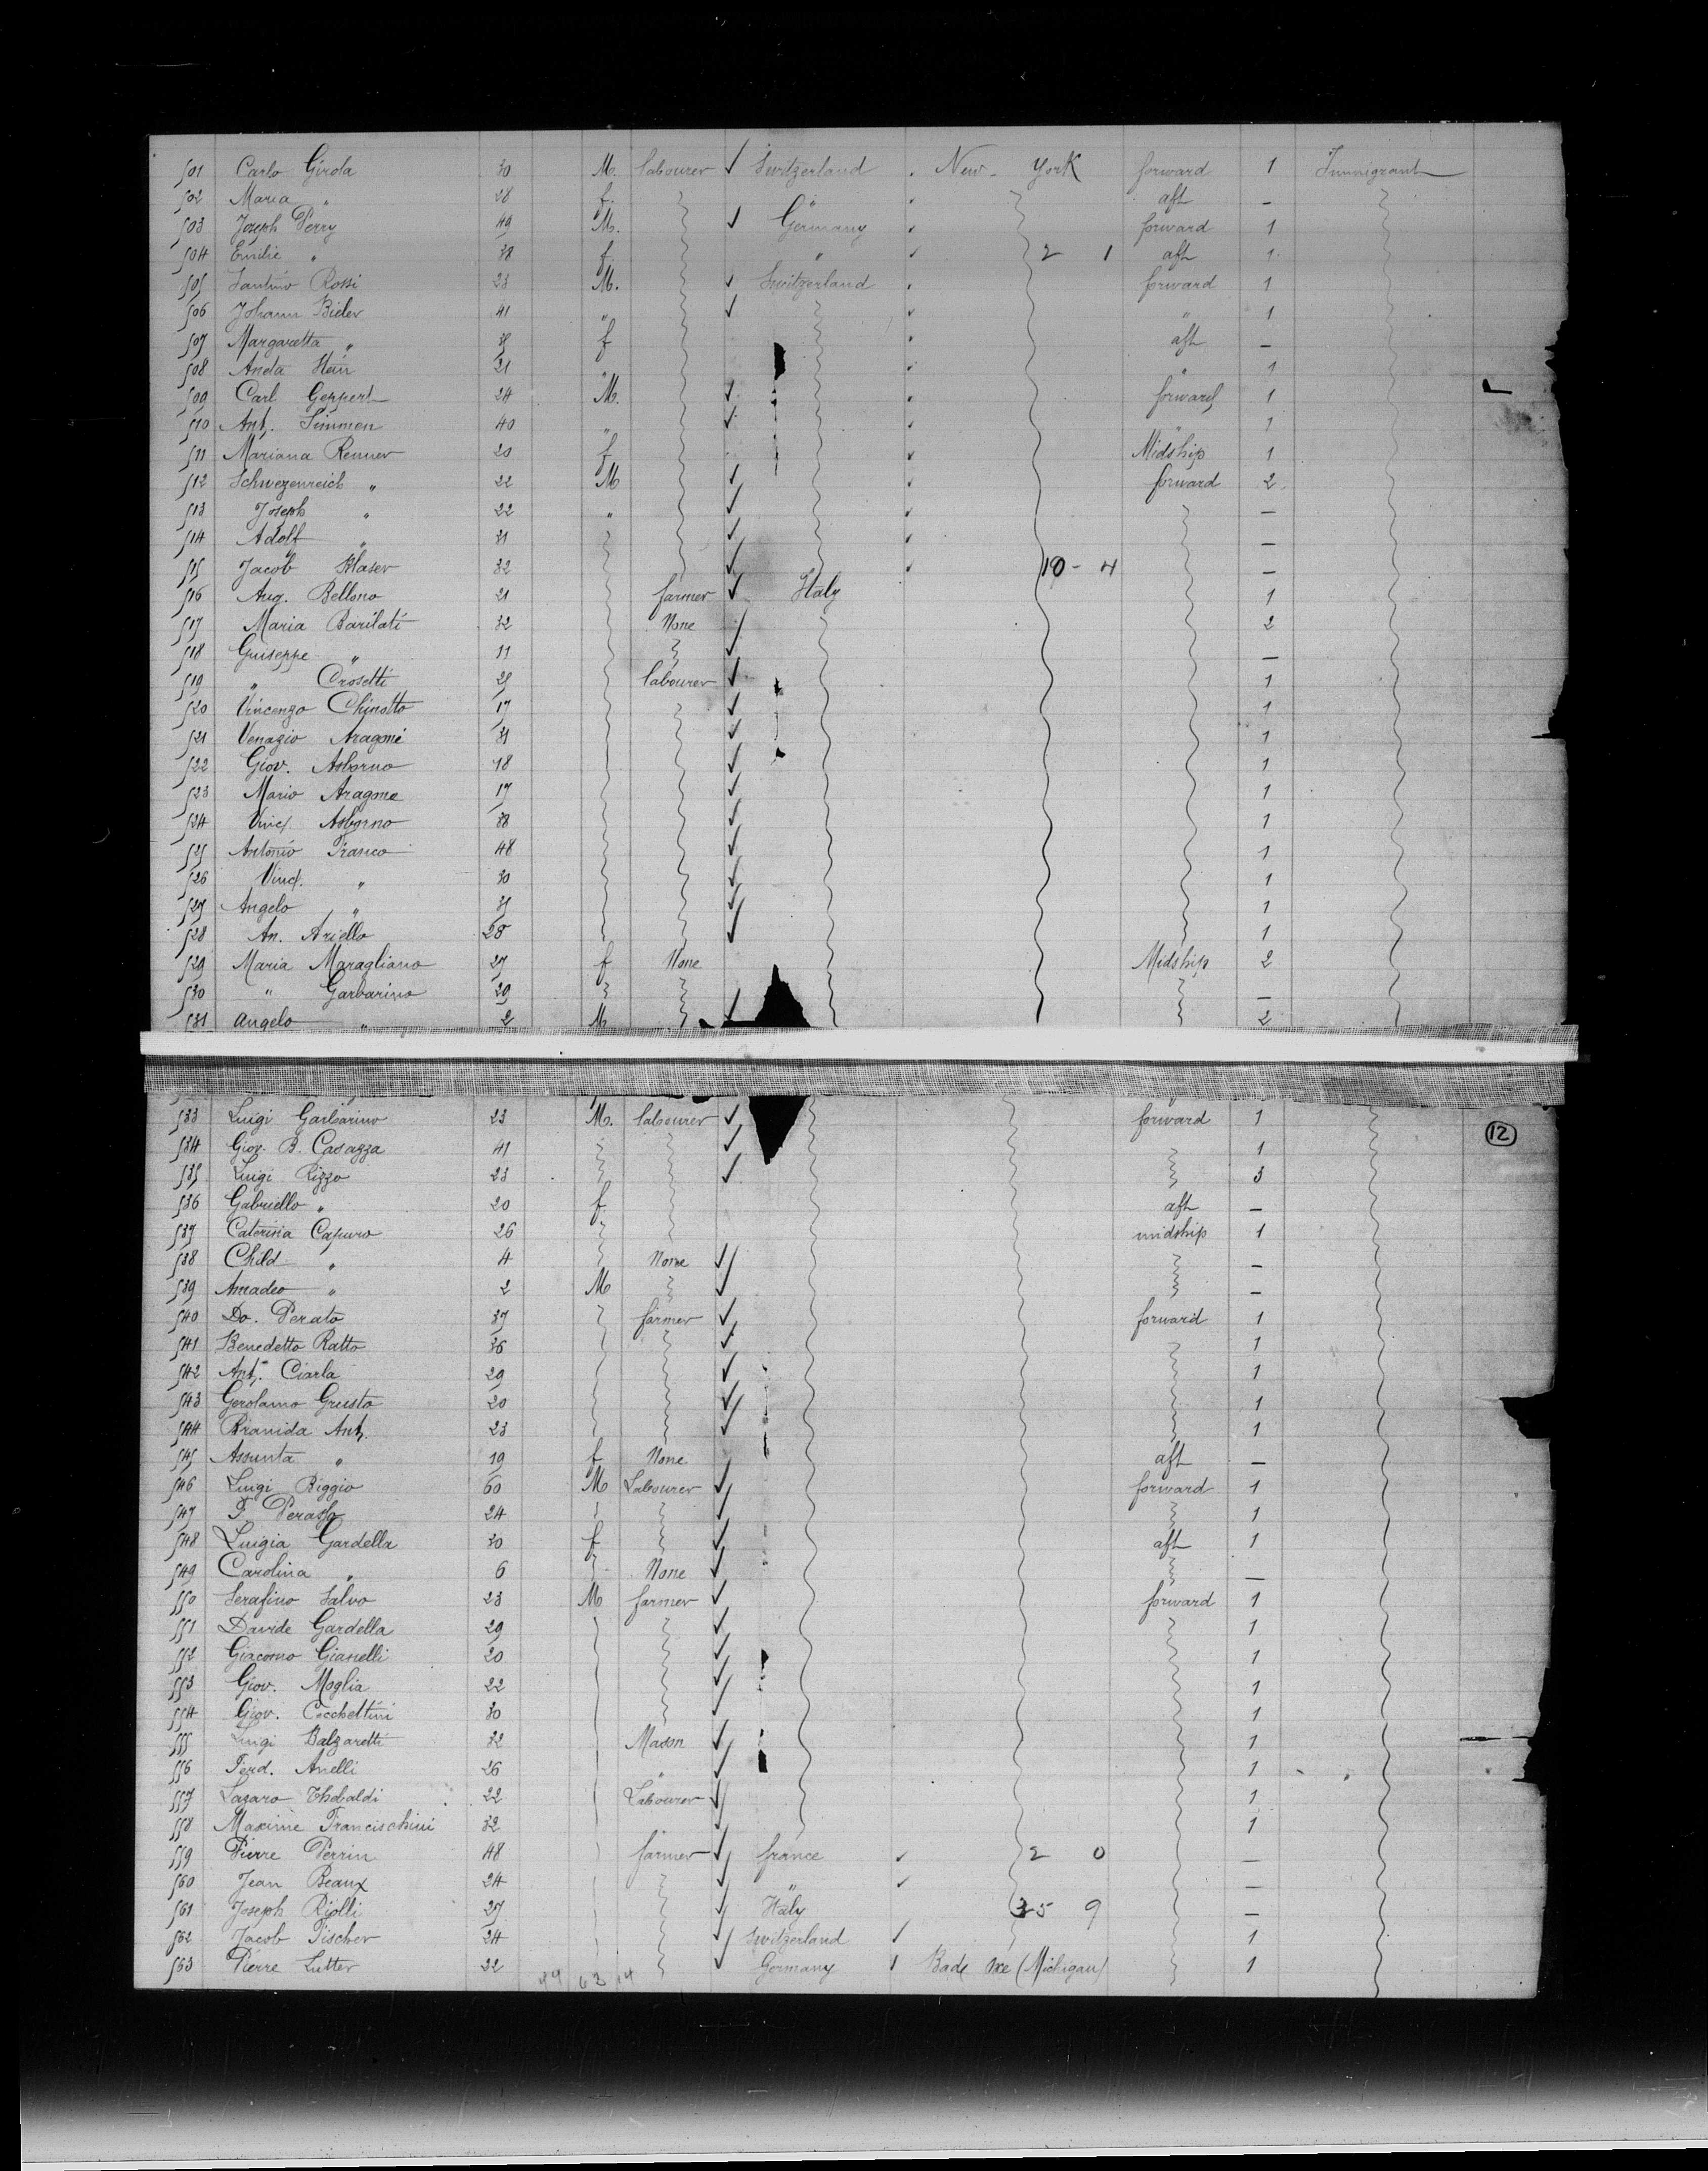 501 Carlo Girola 30 M. labourer ✓ Switzerland New York forward 1 Immigrant
502 Maria " 28 f. " aft —
503 Joseph Perry 49 M. ✓ Germany forward 1
504 Emilie " 38 f " 2 1 aft 1
505 Santino Rossi 23 M. ✓ Switzerland forward 1
506 Johann Bieler 41 " ✓ " 1
507 Margaretta " f aft —
508 Anda 21 " " 1
509 Carl Geppert 24 M. ✓ forward 1
510 Ant. Simmen 40 " ✓ " 1
511 Mariana Renner 20 f Midship 1
512 Schwezenreich " 22 M ✓ forward 2
513 Joseph " 22 " ✓ —
514 Adolf " 31 ✓ —
515 Jacob Blaser 32 ✓ 10 - 4 —
516 Aug. Bellono 21 farmer ✓ Italy 1
517 Maria Barilati 32 None ✓ 2
518 Guiseppe " 11 ✓ —
519 " Crosetti 25 labourer ✓ 1
520 Vincenzo Chinotto 17 ✓ 1
521 Venazio Aragone ✓ 1
522 Giov. Asborno 18 ✓ 1
523 Mario Aragone 17 ✓ 1
524 Vinc. Asborno 38 ✓ 1
525 Antonio Franco 48 ✓ 1
526 Vinc. " 30 ✓ 1
527 Angelo " ✓ 1
528 An. Ariello 28 ✓ 1
529 Maria Maragliano 27 f None Midship 2
530 " Garbarino 29 —
531 Angelo " 2 M ✓ 2
533 Luigi Garbarino 23 M. labourer ✓ forward 1
12
534 Giov. B. Casazza 41 ✓ 1
535 Luigi Rizzo 23 ✓ 3
536 Gabriello " 20 f aft —
537 Caterina Capuro 26 midship 1
538 Child " 4 None ✓ —
539 Amadeo " 2 M ✓ —
540 Do. Perato 37 farmer ✓ forward 1
541 Benedetto Ratto 36 ✓ 1
542 Ant. Ciarla 29 ✓ 1
543 Gerolamo Giusto 20 ✓ 1
544 Branida Ant. 23 ✓ 1
545 Assunta " 19 f None aft —
546 Luigi Biggio 60 M Labourer ✓ forward 1
547 F. Perasso 24 ✓ 1
548 Luigia Gardella 30 f ✓ aft 1
549 Carolina " 6 None ✓ —
550 Serafino Salvo 23 M farmer ✓ forward 1
551 Davide Gardella 29 ✓ 1
552 Giacomo Gianelli 20 ✓ 1
553 Giov. Moglia 22 ✓ 1
554 Giov. Cecchettini 30 ✓ 1
555 Luigi Balzaretti 32 Mason ✓ 1
556 Ferd. Anelli 26 " ✓ 1
557 Lazaro Thobaldi 22 Labourer ✓ 1
558 Maxime Francischini 32 ✓ 1
559 Pierre Perrin 48 farmer ✓ france 2 0 —
560 Jean Beaux 24 ✓ " —
561 Joseph Riolli 27 ✓ Italy 35 9 —
562 Jacob Fischer 24 ✓ Switzerland 1
563 Pierre Lutter 22 ✓ Germany Bad Axe (Michigan) 1